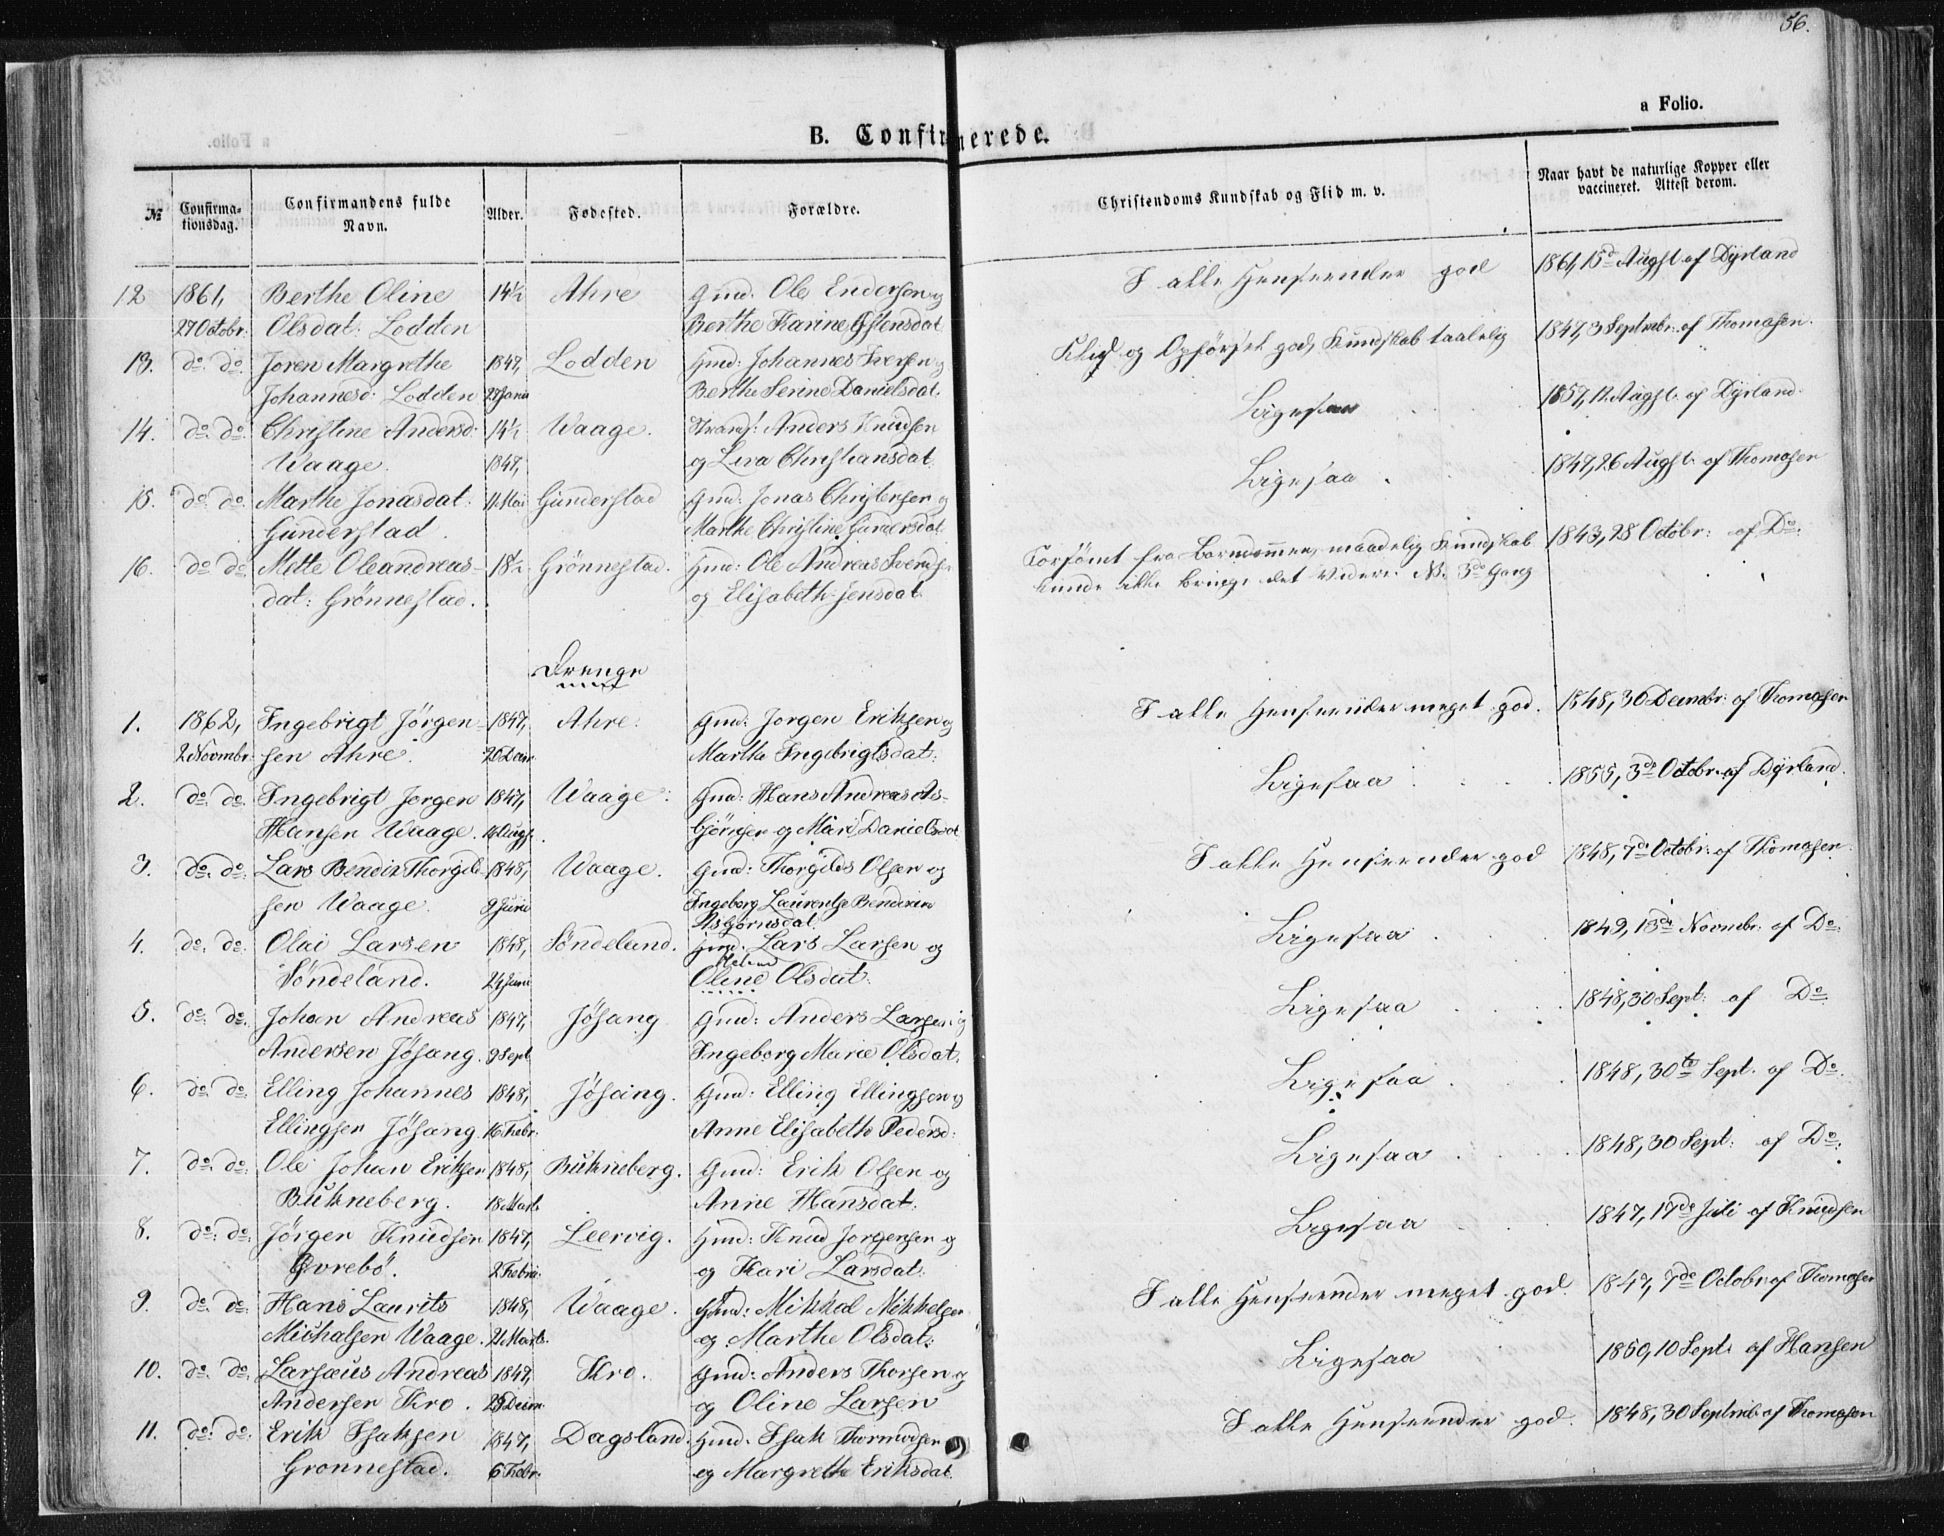 56.
a Folio.
B. Confirmerede.
№ Confirma-tionsdag. Confirmandens fulde Navn. Alder. Fødested. Forældre. Christendoms Kundskab og Flid m. v. Naar havt de naturlige Kopper eller vaccineret. Attest derom.
12 1861, Berthe Oline 14½ Ahre Gmd. Ole Endersen og I alle Henseender god 1861, 15d Augst af Dyrland
27 Octobr. Olsdat: Lodden Berthe Karine Østensdat
13. do do Joren Margrethe 1847, Lodden Hmd: Johannes Iversen og Flid og Opførsel god, Kundskab taalelig 1847, 3 Septembr. af Thomasen.
Johannesd: Lodden 27 Janu Berthe Serine Danielsdat.
14. do do Christine Andersd 14½ Waage. Strands: Anders Knudsen Ligesaa 1857, 12 Augst. af Dyrland.
Waage. 1847, og Lera Christiansdat.
15. do do Marthe Jonasdat: 11 Mai Gunderstad Gmd: Jonas Christensen og Ligesaa 1847, 26 Augst. af Thomasen
Gunderstad. Marthe Christine Gundersdat
16. do do Mette Oleandreas- 18½ Grönnestad. Hmd: Ole Andreas Svends. Forsømt fra Barndommen, maadelig Kundskab 1843, 28 Octobr: af Do.
dat: Grönnestad. og Elisabeth Jensdat kunde ikke bringe det videre. NB. 3de Gang
Drenge
1. 1862, Ingebrigt Jörgen- 1847, Ahre. Gmd: Jorgen Eriksen og I alle Henseender meget god. 1848, 30 Decmbr: af Thomasen
2 Novmbr. sen Ahre. 26 Decm Martha Ingebrigtsdat:
2. do. do. Ingebrigt Jorgen 1847, Waage: Gmd: Hans Andreas As- Ligesaa 1855, 3de Octobr. af Dyrland.
Hansen Waage. 14 Augs. björnsen og Mari Danielsdat
3. do. do: Lars Bendix Thorgils- 1848, Waage. Gmd: Thorgils Olsen og I alle Henseender god 1848, 7de Octobr: af Thomasen
sen Waage. 9 Juni Ingeborg Laurentse Bendixine
Asbjørnsdat.
4. do. do: Olai Larsen 1848, Söndeland. Hmd. Lars Larsen og Ligesaa 1849, 13de Novmbr. af Do.
Söndeland. 24 Juni Oline Olsdat: Helene
5. do: do. Johan Andreas 1847, Jösang Gmd: Anders Larsen og Ligesaa 1848, 30 Sept: af Do.
Andersen Jösang. 9 Sept. Ingeborg Marie Olsdat.
6. do do: Elling Johannes 1848, Jösang. Gmd: Elling Ellingsen og Ligesaa 1848, 30te Sept. af Do.
Ellingsen Jösang 16 Febr. Anne Elisabeth Pedersd:
7. do. do: Ole Johan Eriksen 1848, Bukneberg. Gmd: Erik Olsen og Ligesaa 1848, 30 Sept: af Do:
Bukneberg. 18 Marts Anne Hansdat.
8. do: do: Jörgen Knudsen 1847, Leervig. Hmd: Knud Jorgensen og Ligesaa 1847, 17de Juli af Knudsen
Øvrebö. 2 Febru. og Kari Larsdat.
9. do: do: Hans Laurits 1848, Waage. Hmd: Mikkal Mikkelsen I alle Henseender meget god. 1847, 7de Octobr: af Thomasen
Michalsen Waage. 2 Marts. og Marthe Olsdat:
10. do. do. Larsæus Andreas 1847, Kro. Gmd: Anders Thorsen og Ligesaa 1850, 10 Sept: af Hansen
Andersen Kro. 29 Decm. og Oline Larsen
11. do: do: Erik Isaksen 1847, Dagsland. Hmd. Isak Thormodsen I alle Henseender god. 1848, 30 Septmb. af Thomasen
Gronnestad. 6 Febr. og Margrethe Eriksdat.